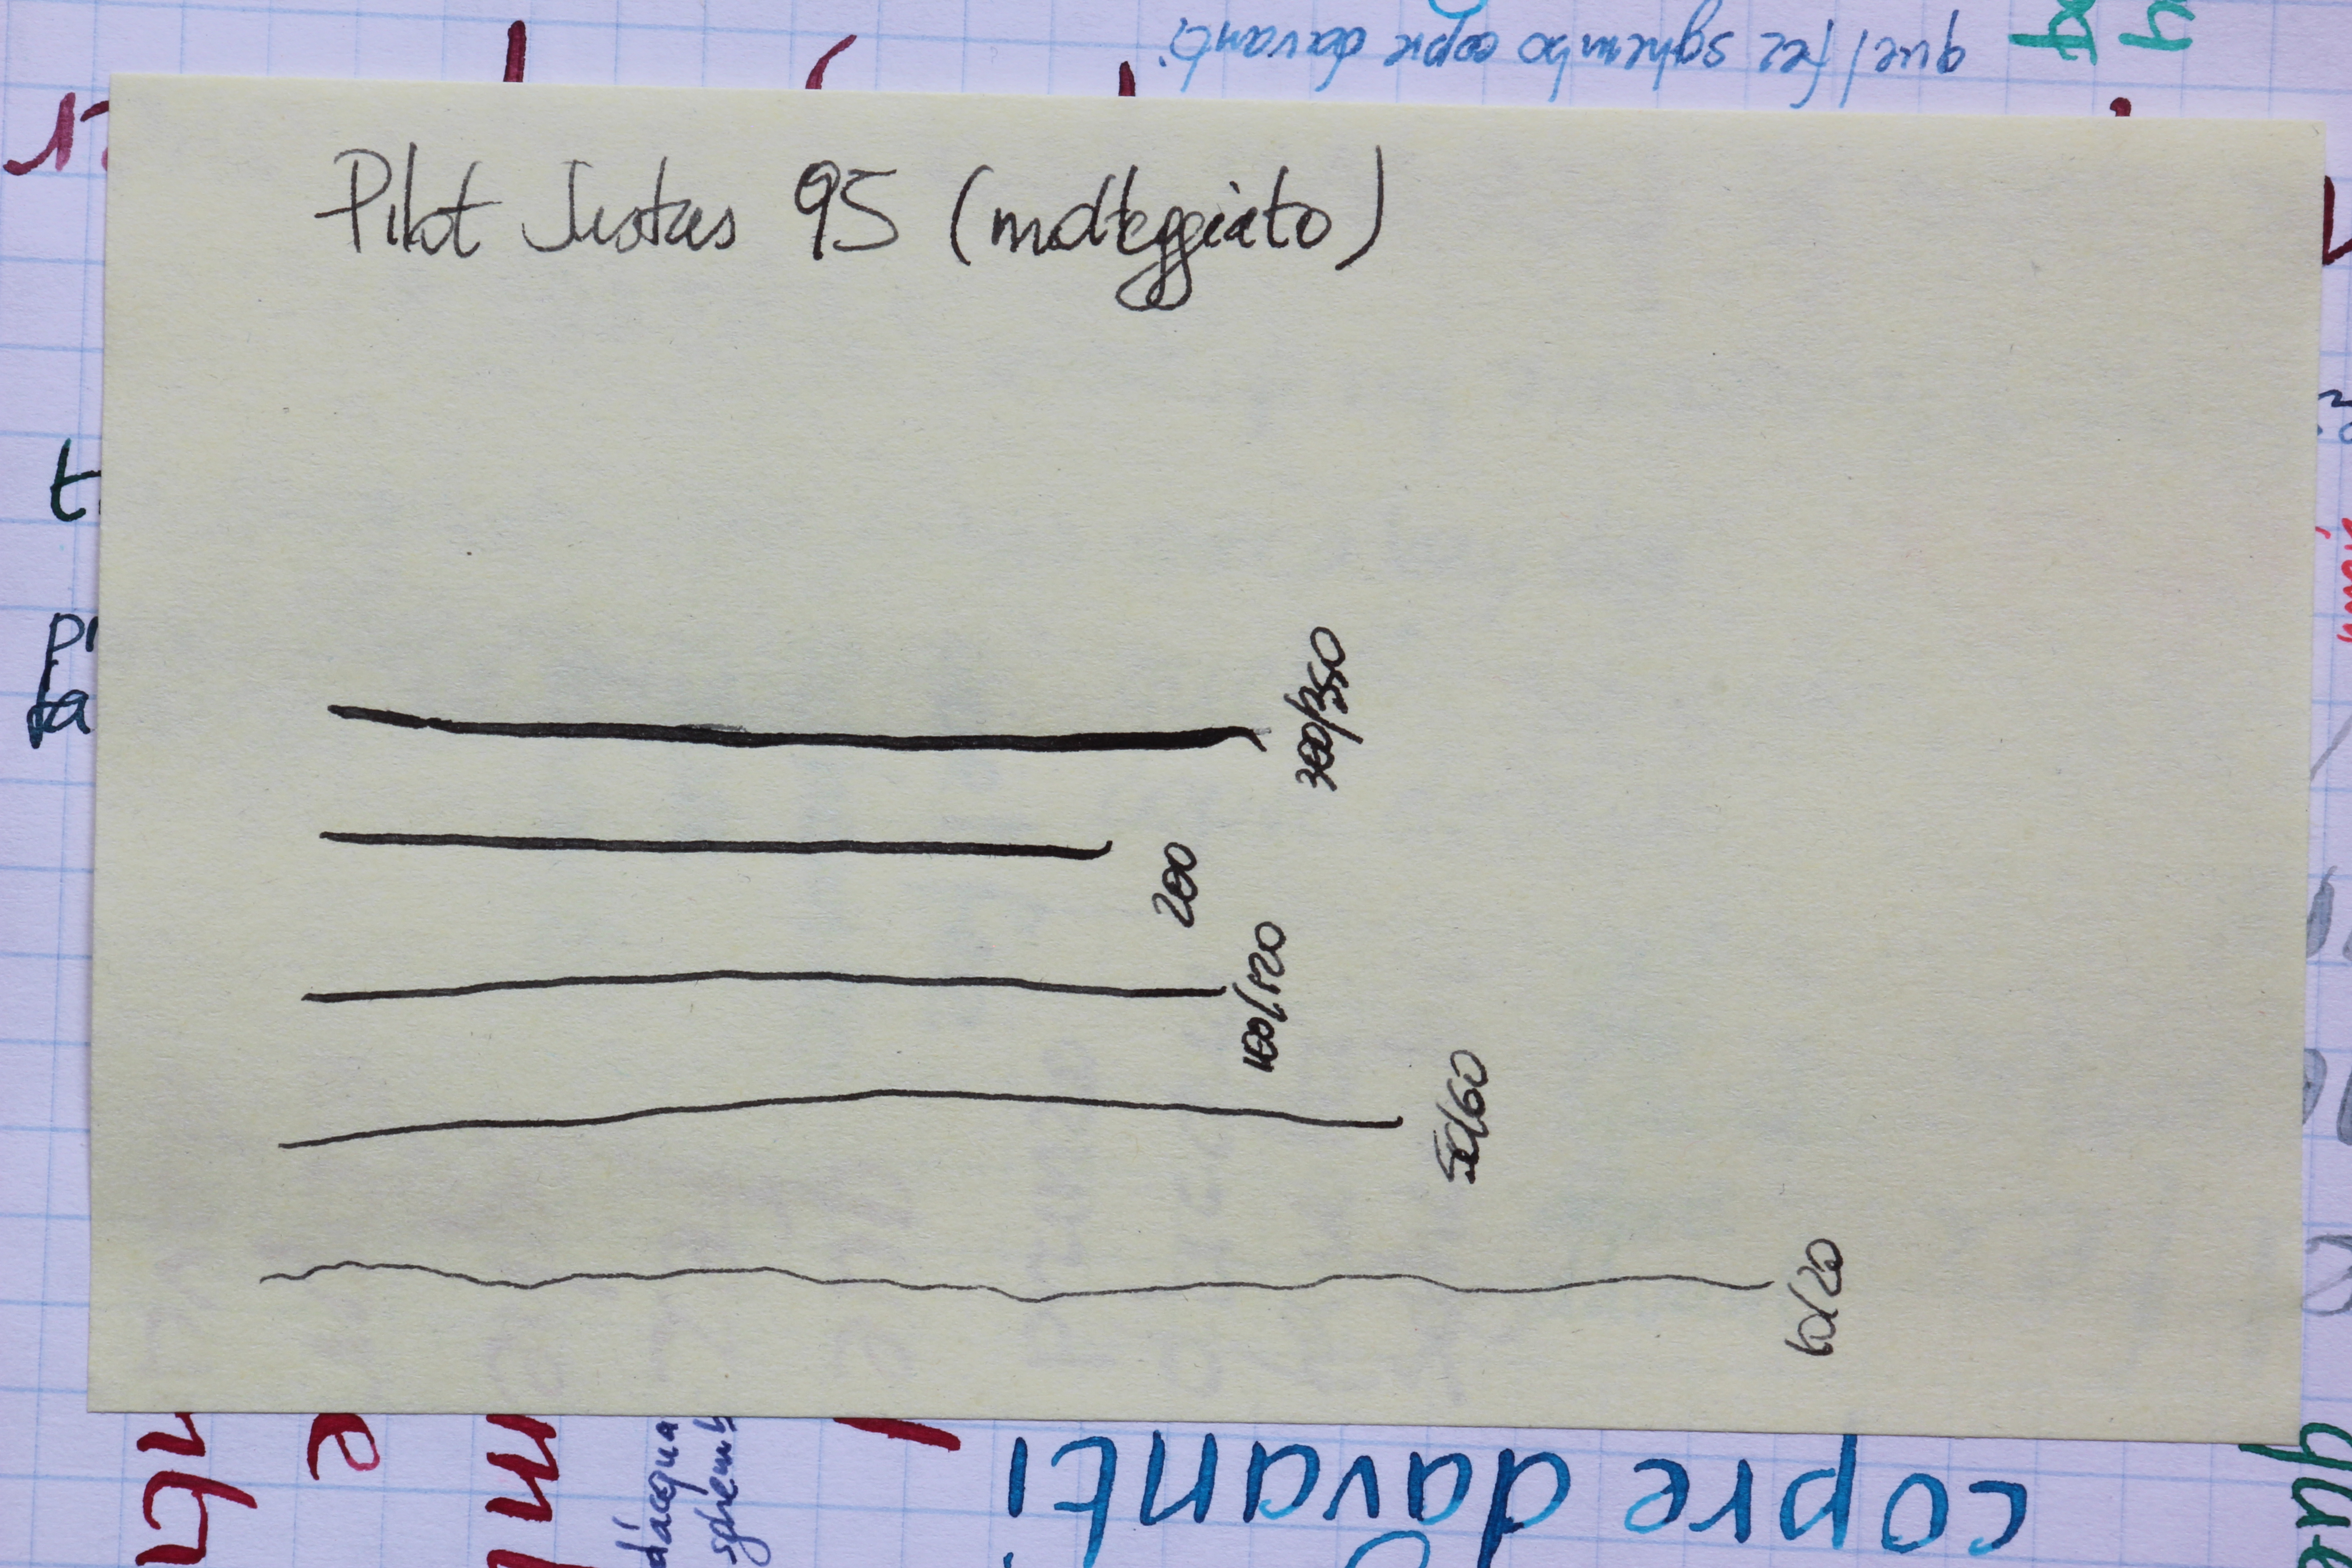 quel fez sghembo copre davanti.
Pilot Justus 95 (molteggiato)
300/350
200
100/120
50/60
10/20
d'acqua
sghemb
copre davanti